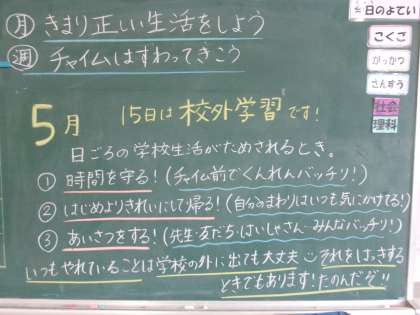 月 きまり正しい生活をしよう
週 チャイムはすわってきこう
5月 15日は校外学習です!
日ごろの学校生活がためされるとき。
① 時間を守る!(チャイム前でくんれんバッチリ!)
② はじめよりきれいにして帰る!(自分のまわりはいつも気にかけてる!)
③ あいさつをする!(先生・友だち・はいしゃさん…みんなバッチリ!)
いつもやれていることは学校の外に出ても大丈夫 それをはっきする
ときでもあります!たのんだぞ!!
日のよてい
こくご
がっかつ
さんすう
社会
理科